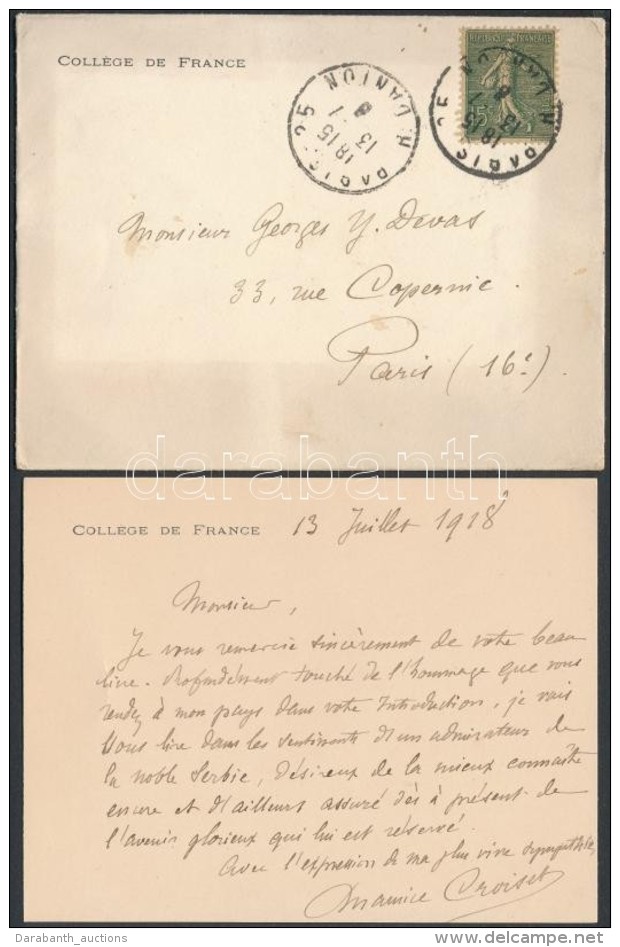 COLLÈGE DE FRANCE
RÉPUBLIQUE FRANÇAISE
15
PARIS 25 R. DANTON
18 15
13 7
PARIS 25 R. DANTON
18 15
13 7
Monsieur Georges Y. Devas
33, rue Copernic.
Paris (16e).
darabanth
COLLÈGE DE FRANCE 13 Juillet 1918
Monsieur,
Je vous remercie sincèrement de votre beau
livre. Profondément touché de l'hommage que vous
rendez à mon pays dans votre Introduction, je vais
vous lire dans les sentiments d'un admirateur de
la noble Serbie, désireux de la mieux connaître
encore et d'ailleurs assuré dès à présent de
l'avenir glorieux qui lui est réservé.
Avec l'expression de ma plus vive sympathie,
Maurice Croiset
Darabanth_auctions
delcampe.net